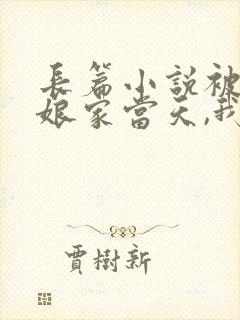 長篇小説被
娘家當天,我
賈樹新